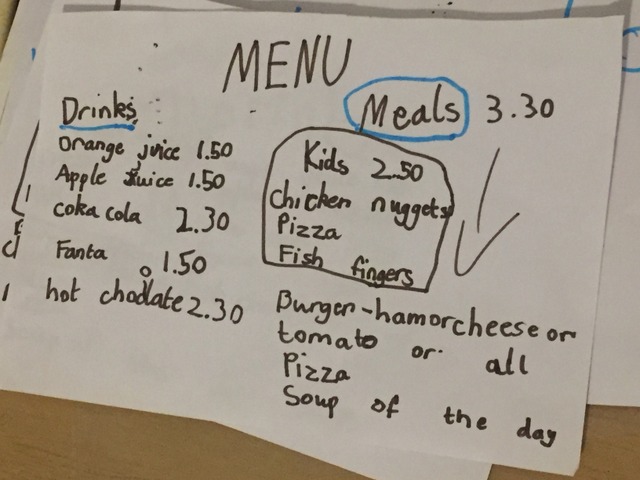 MENU
Drinks
Orange juice 1.50
Apple Juice 1.50
coka cola 2.30
Fanta 1.50
hot choclate 2.30
Meals 3.30
Kids 2.50
chicken nuggets
Pizza
Fish fingers
Burger-ham or cheese or
tomato or all
Pizza
Soup of the day